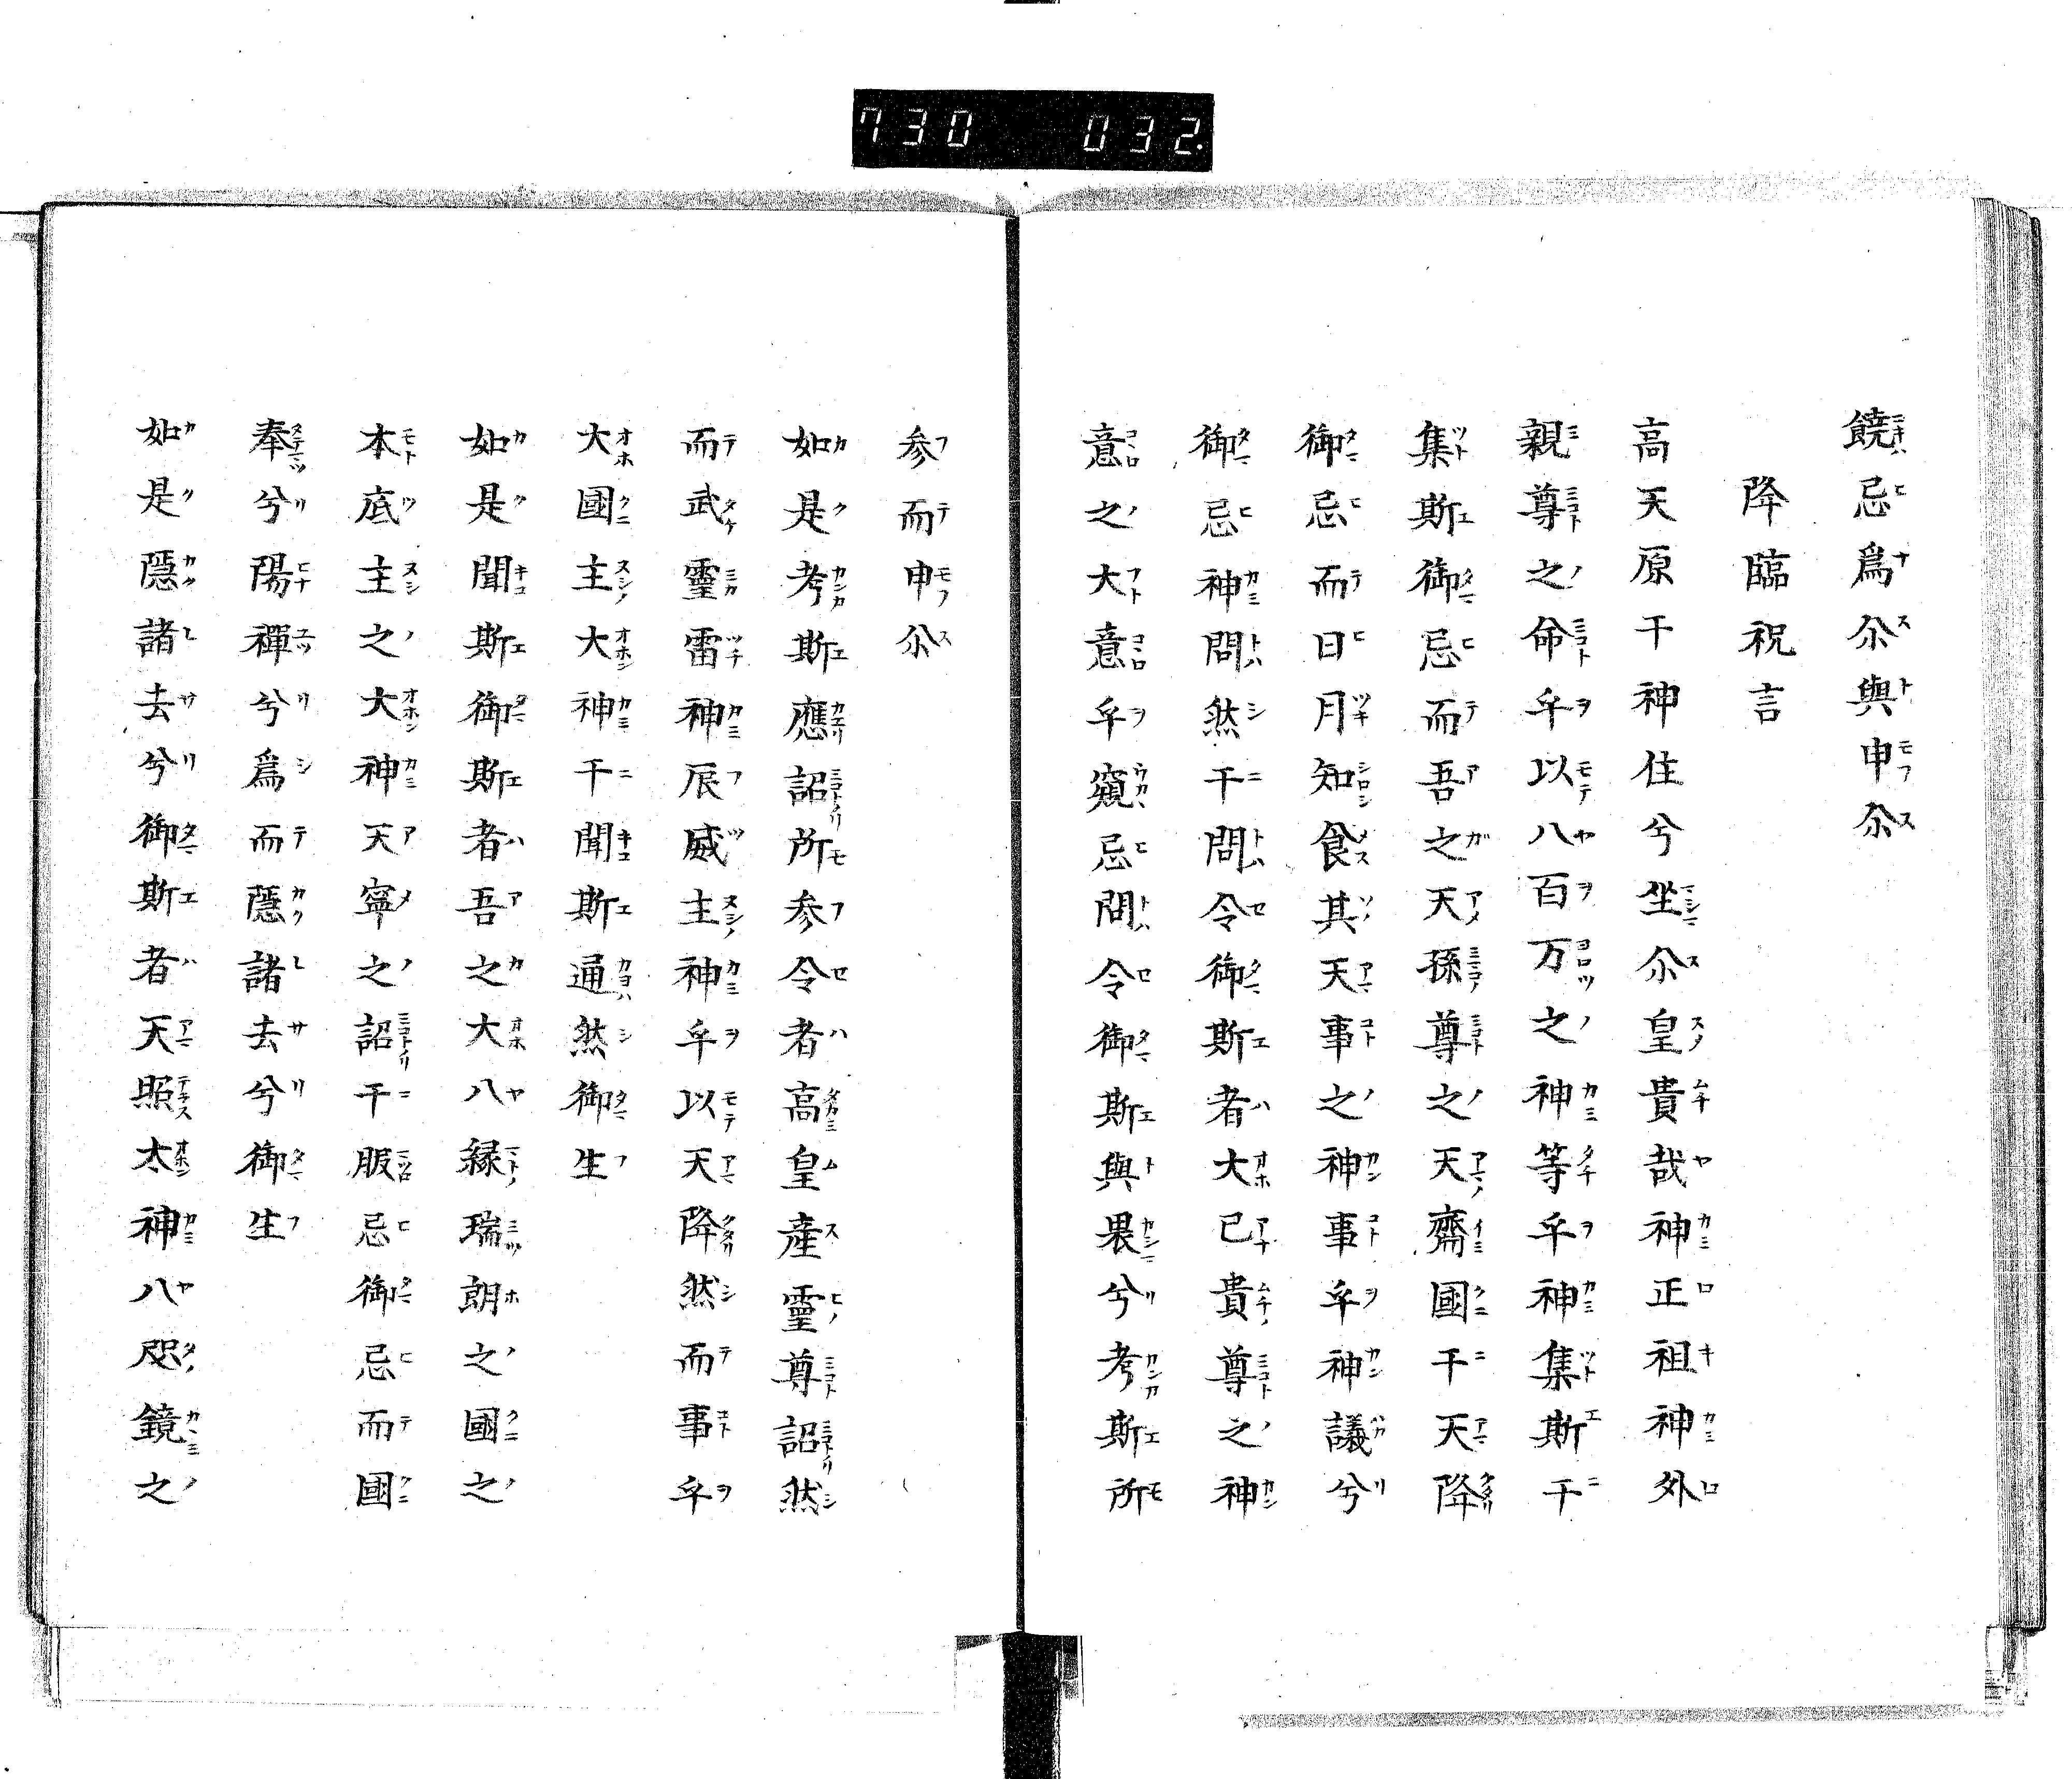 730 032.
饒忌爲尒與申尒
降臨祝言
高天原干神住兮坐尒皇貴哉神正祖神外
親尊之命乎以八百万之神等乎神集斯干
集斯御忌而吾之天孫尊之天齋國干天降
御忌而日月知食其天事之神事乎神議兮
御忌神問然干問令御斯者大已貴尊之神
意之大意乎窺忌問令御斯與畏兮考斯所
参而申尒
如是考斯應詔所参令者高皇産靈尊詔然
而武靈雷神辰威主神乎以天降然而事乎
大國主大神干聞斯通然御生
如是聞斯御斯者吾之大八縁瑞朗之國之
本底主之大神天寧之詔干服忌御忌而國
奉兮陽禪兮爲而隱諸去兮御生
如是隱諸去兮御斯者天照太神八咫鏡之